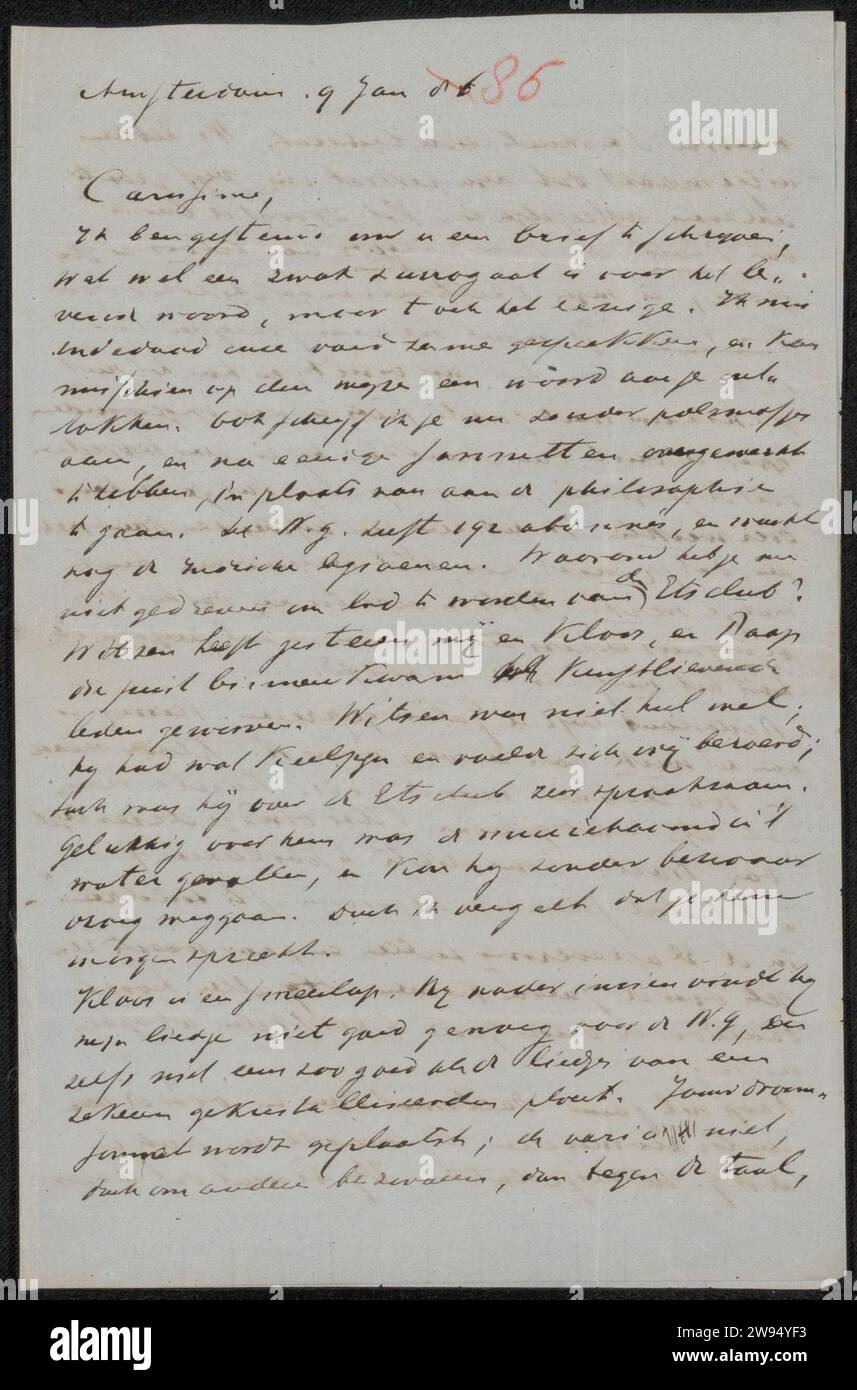 Amsterdam. 9 Jan 86
Carissime,
Ik ben gestemd om u een brief te schrijven,
wat wel een zwak surrogaat is voor het le-
vend woord, maar toch het eenige. Ik mis
inderdaad onze gesprekken, en kan
misschien op den een woord aan je ont-
lokken. Ook schrijf ik je nu zonder polsmofjes
aan, en na eenige sonnetten
te hebben, in plaats van aan de philosophie
te gaan. De N.G. heeft 192 abonnés, en wacht
nog de Indische. Waarom heb je me
niet gedreven om lid te worden van de Etsclub?
Witsen heeft gisteren mij en Kloos, en Raap
die juist binnen kwam tot Kunstlievende
leden geworven. Witsen was niet heel wel;
hy had wat keelpijn en voelde zich vrij beroerd;
toch was hij over de Etsclub zeer spraakzaam.
Gelukkig voor hem was de in 't
water gevallen, en kon hy zonder bezwaar
vroeg weggaan. Doch ik vergeet dat je hem
morgen spreekt.
Kloos is een smeerlap. By nader inzien vondt hy
mijn liedje niet goed genoeg voor de N.G, en
zelfs niet eens zoo goed als de liedjes van een
zekeren gekristalliseerden ploert. Jouw droom-
sonnet wordt geplaatst; de varia niet,
doch om andere bezwaren, dan tegen de taal,
alamy
Image ID: 2W94YF3
www.alamy.com